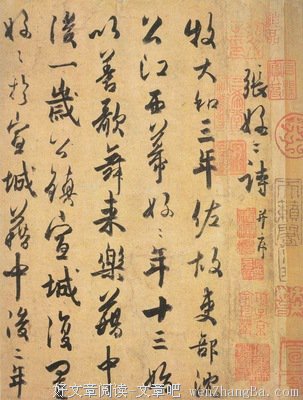 張好〻詩并序
牧大和三年佐故吏部沈
公江西幕好〻年十三始
以善歌舞来樂籍中
後一歲公鎮宣城復置
好〻於宣城籍中後二年
好文章阅读-文章吧 wenzhangba.com